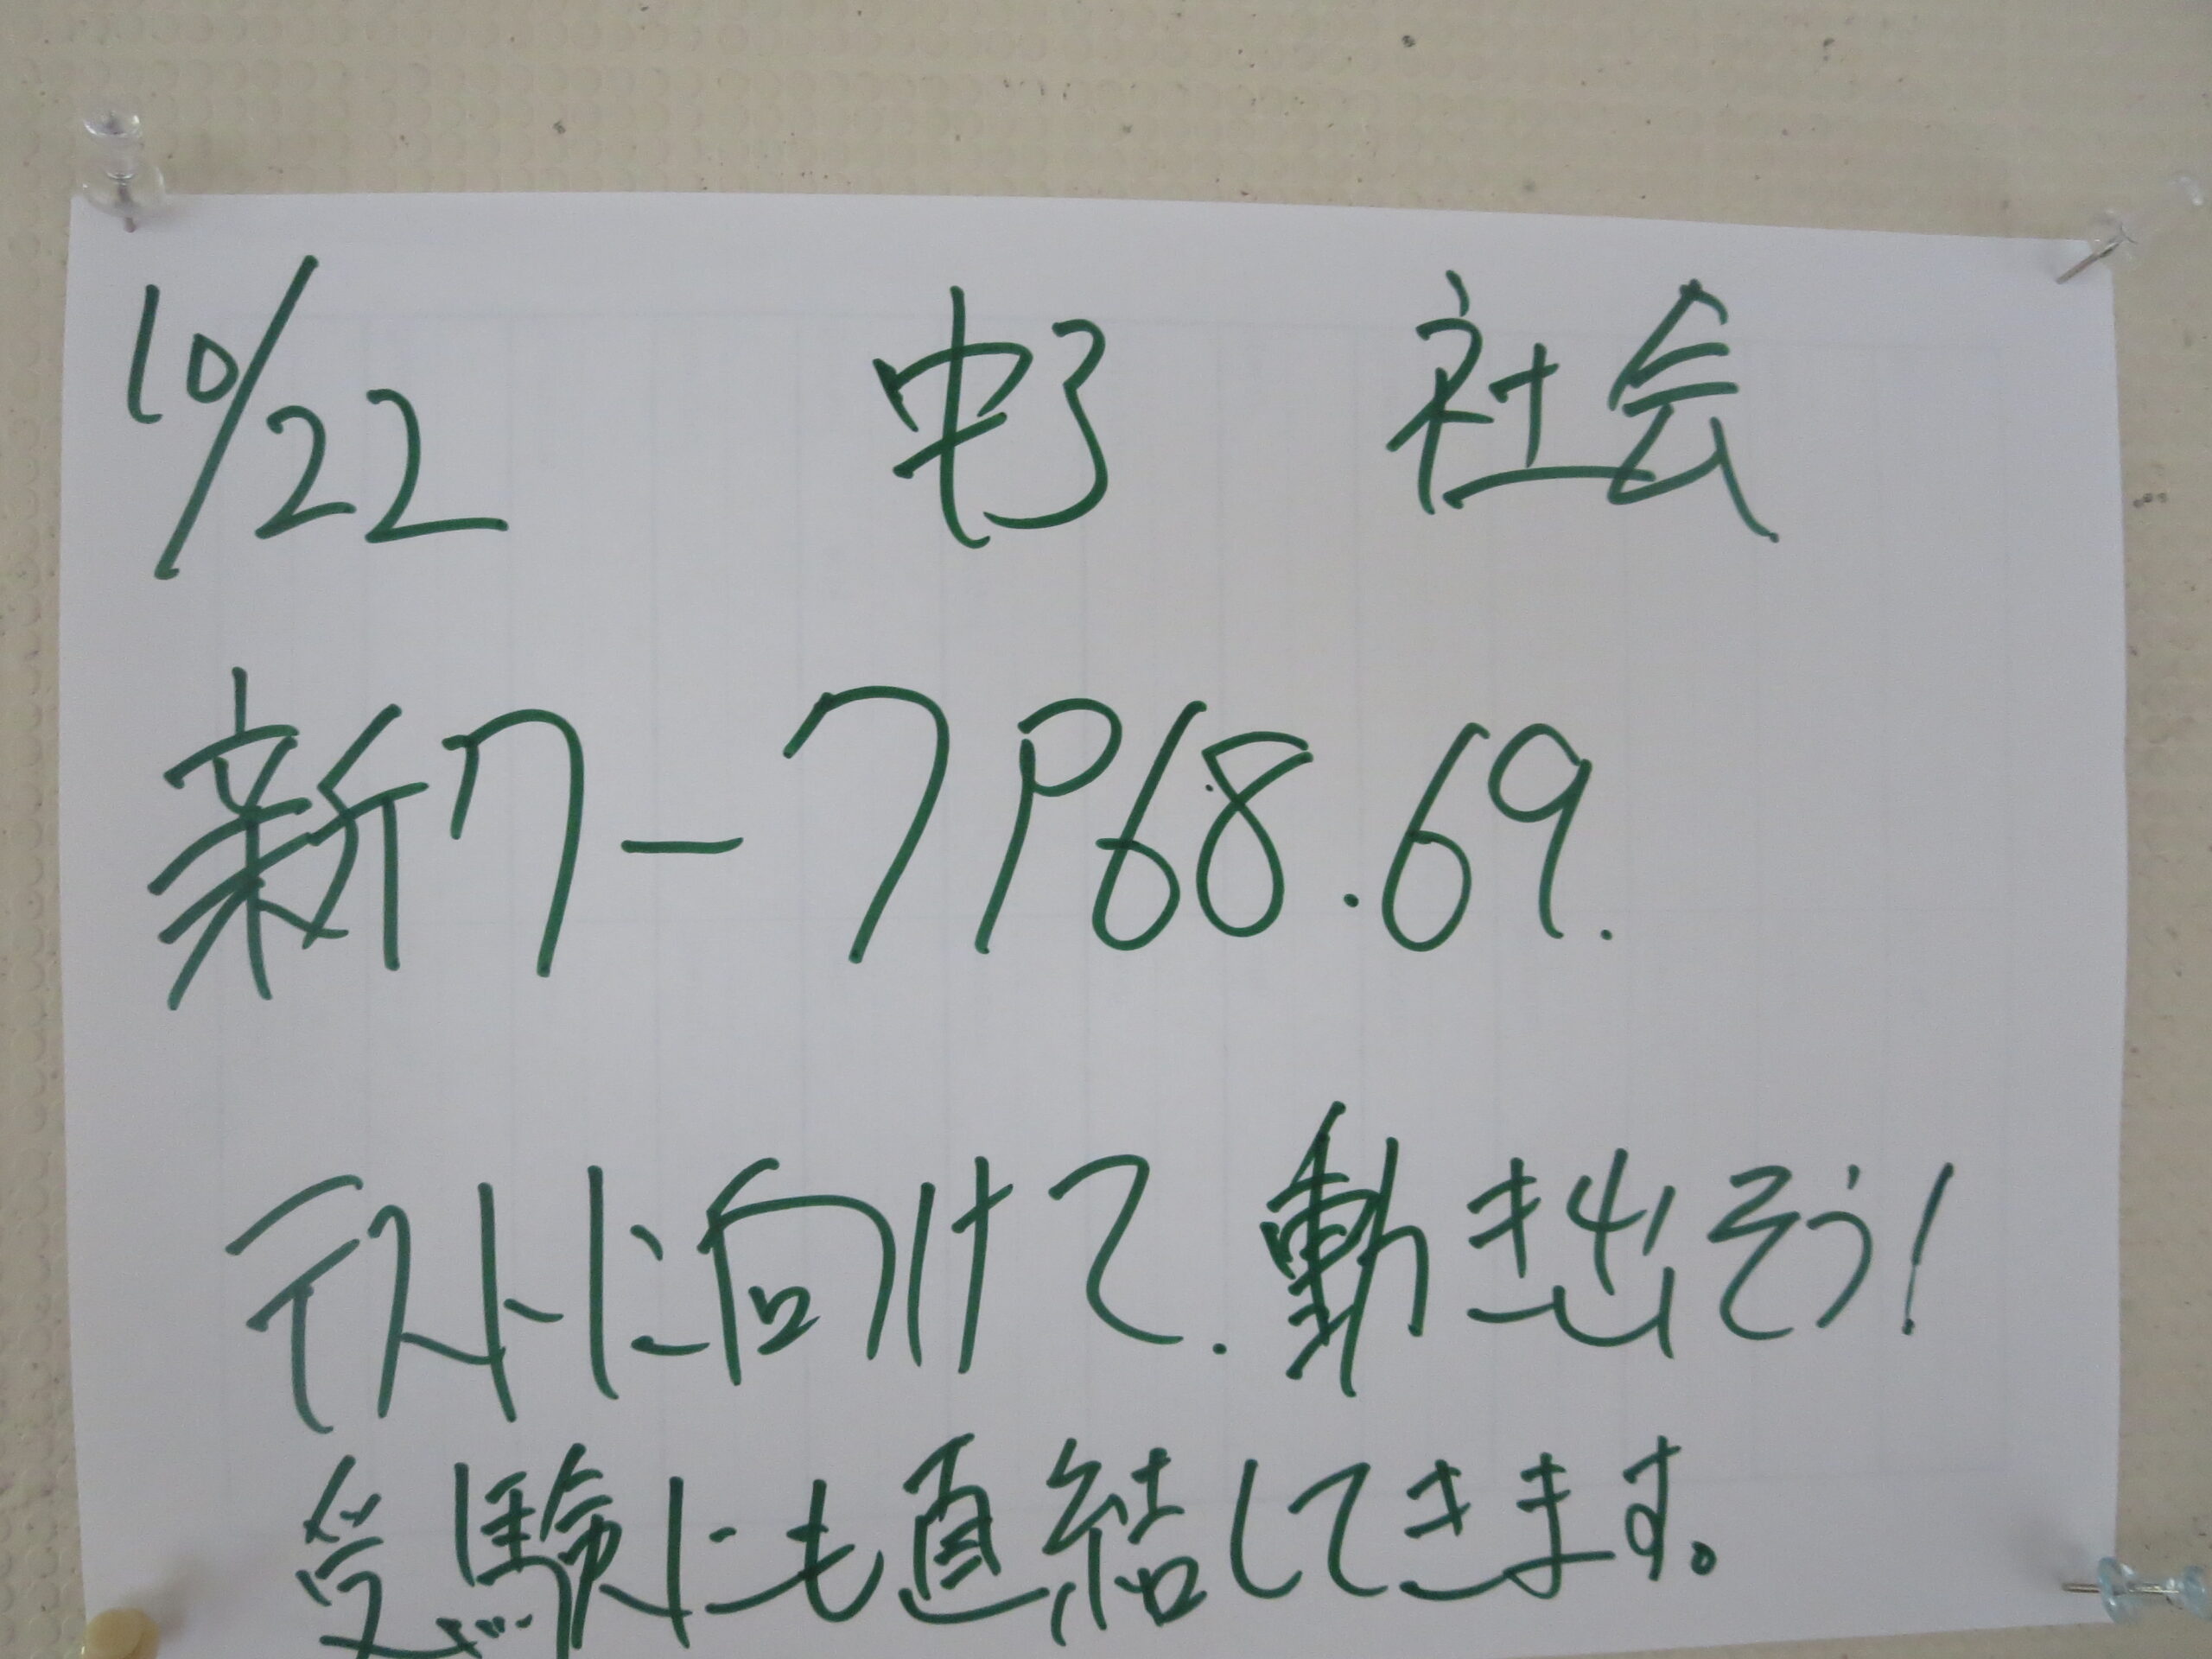 10/22 中3 社会
新ワーク P68.69.
テストに向けて.動き出そう!
受験にも直結してきます。